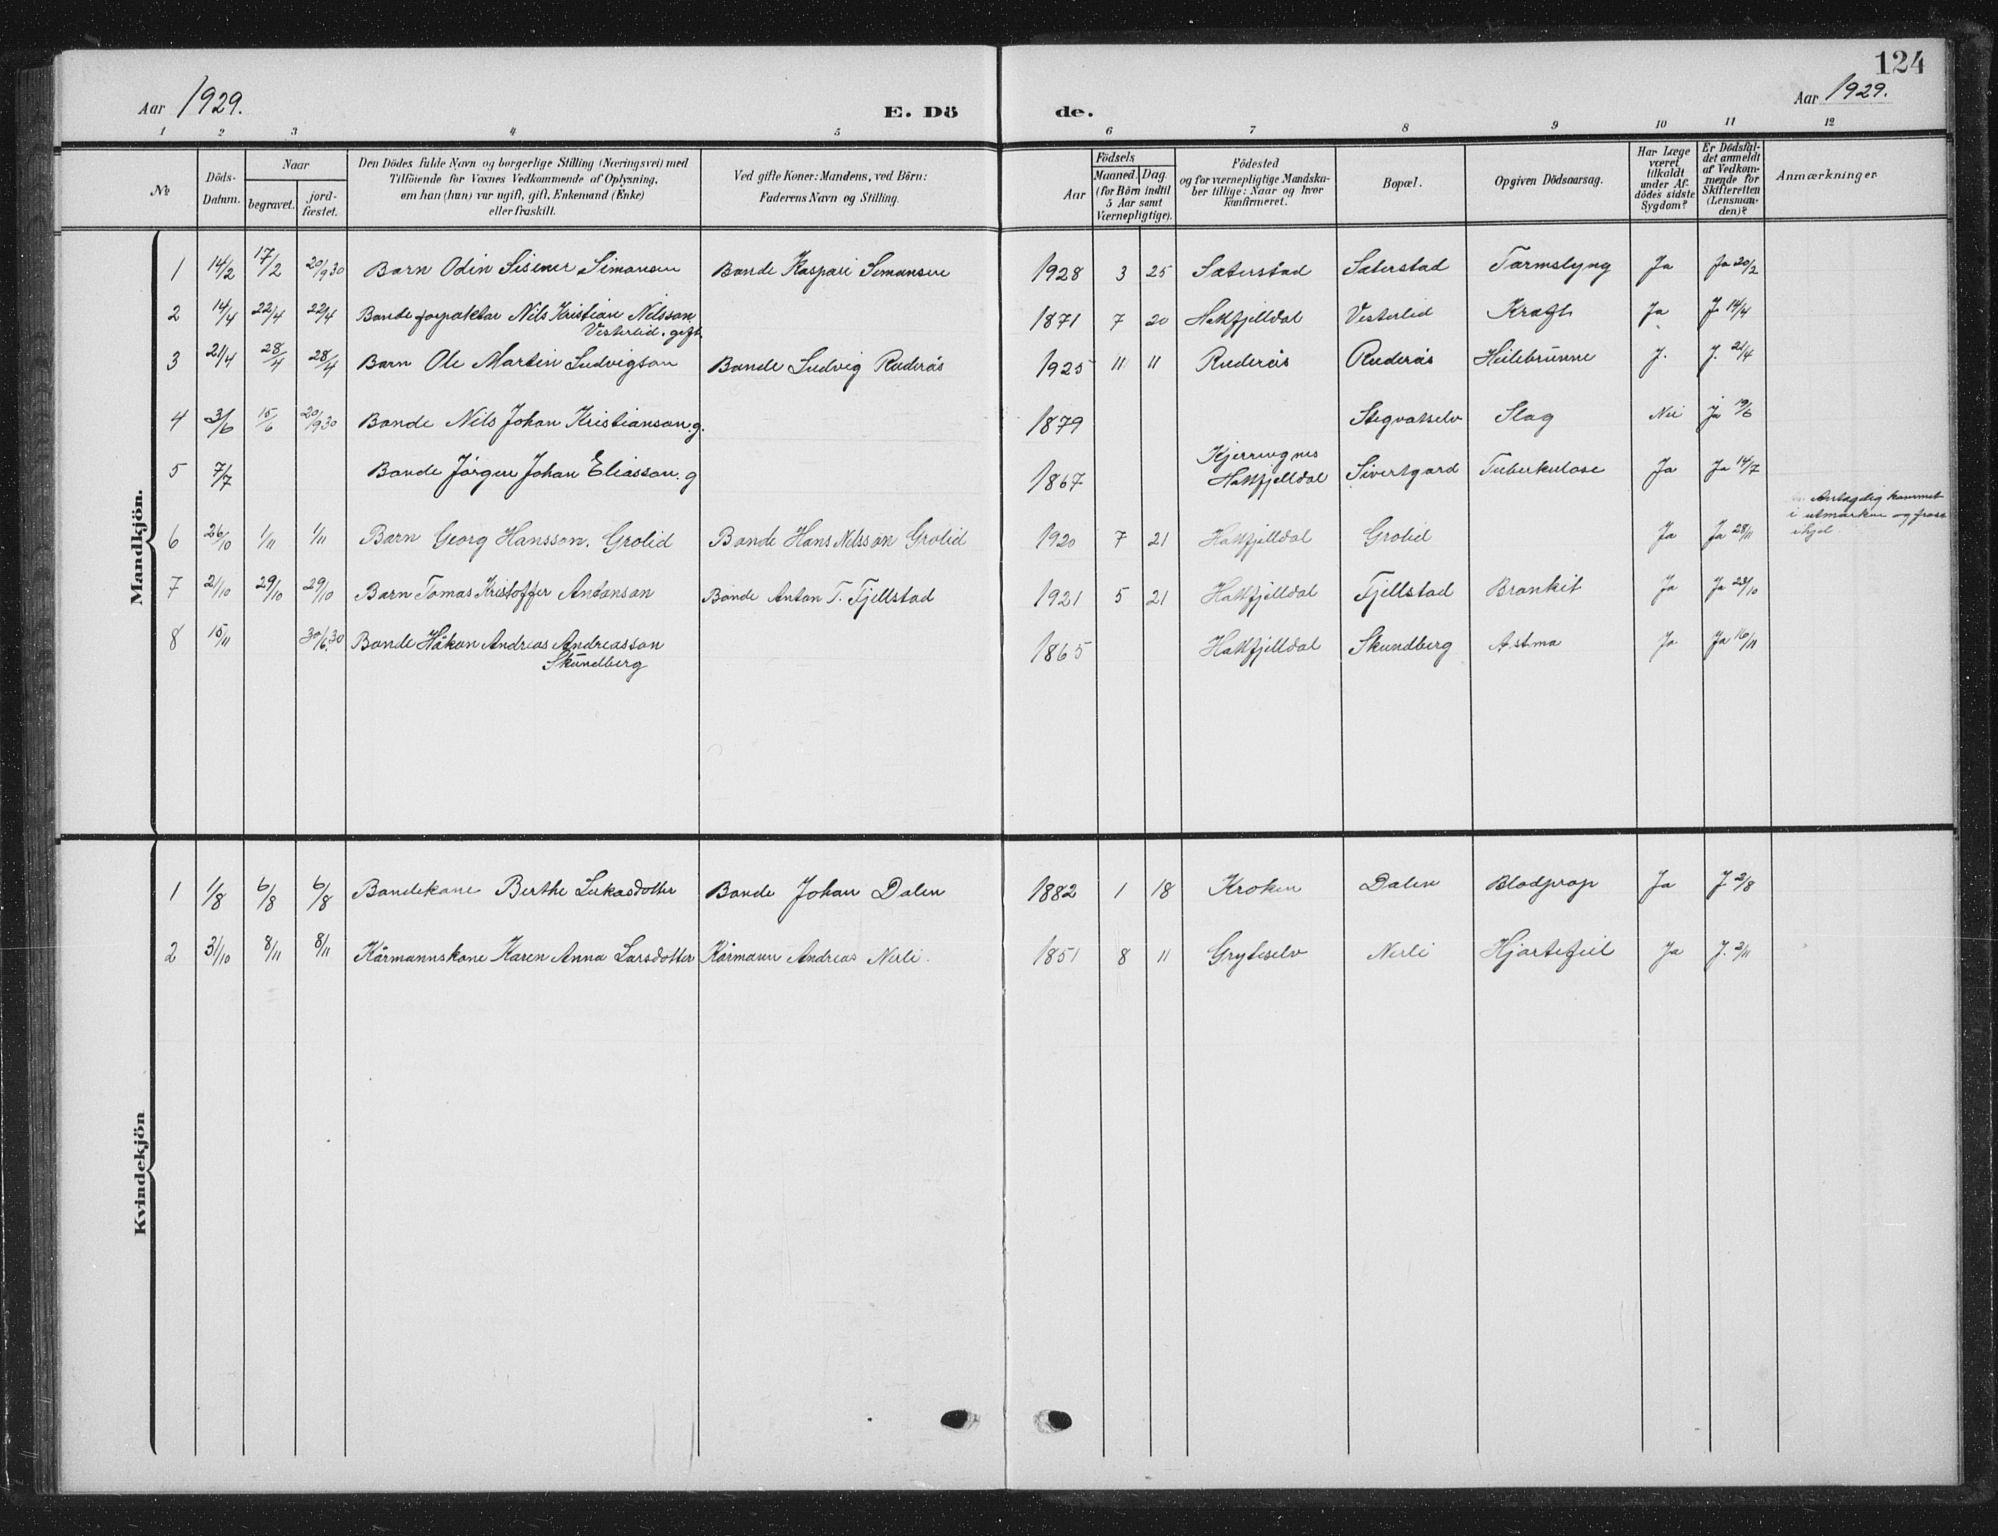 124
Aar 1929.
E. Dö
de.
Aar 1929.
1 2 3 4 5 6 7 8 9 10 11 12
No
Döds-
Datum.
Naar
begravet.
jord-
fæstet.
Den Dödes fulde Navn og borgerlige Stilling (Næringsvei) med
Tilföiende for Voxnes Vedkommende af Oplysning,
om han (hun) var ugift, gift, Enkemand (Enke)
eller fraskilt.
Ved gifte Koner: Mandens, ved Börn:
Faderens Navn og Stilling.
Födsels
Aar
Maaned. Dag.
(for Börn indtil
5 Aar samt
Værnepligtige).
Födested
og for værnepligtige Mandska-
ber tillige: Naar og hvor
konfirmeret.
Bopæl.
Opgiven Dödsaarsag.
Har Læge
været
tilkaldt
under Af-
dödes sidste
Sygdom?
Er Dödsfal-
det anmeldt
af Vedkom-
mende for
Skifteretten
(Lensman-
den)?
Anmærkninger
Mandkjön.
1 14/2 17/2 20/9 30 Barn Odin Simonsen Bonde Kaspari Simonsen 1928 3 25 Sæterstad Sæterstad Tarmslyng Ja Ja 20/2
2 14/4 22/4 22/4 Bonde forpaktar Nils Kristian Nilsson 1871 7 20 Hattfjelldal Vesterlid Kræft Ja J. 14/4
Vesterlid. gift.
3 21/4 28/4 28/4 Barn Ole Martin Ludvigson Bonde Ludvig Ruderås 1925 11 11 Ruderås Ruderås J. J. 21/4
4 3/6 15/6 20/9 30 Bonde Nils Johan Kristianson. g. 1879 Stegvatselv Slag Nei Ja 19/6
5 7/7 Bonde Jörgen Johan Eliasson. g 1867 Kjerringnes
Hattfjelldal Sivertgard Tuberkulose Ja Ja 14/7
6 26/10 1/11 1/11 Barn Georg Hansson. Grolid Bonde Hans Nilsson Grolid 1920 7 21 Hattfjelldal Grolid Ja Ja 28/11 kommet
i utmarken og frose
ihjel
7 21/10 29/10 29/10 Barn Tomas Kristoffer Antonson Bonde Anton T. Fjellstad 1921 5 21 Hattfjelldal Fjellstad Bronkit Ja Ja 23/10
8 15/11 30/6 30 Bonde Håkon Andreas Andreasson 1865 Hattfjelldal Skundberg Astma Ja Ja 16/11
Skundberg
Kvindekjön
1 1/8 6/8 6/8 Bondekone Berthe Lukasdotter Bonde Johan Dalen 1882 1 18 Kroken Dalen Blodprop Ja J 2/8
2 31/10 8/11 8/11 Kårmannskone Karen Anna Larsdotter Kårmann Andreas Nerli. 1851 8 11 Gryteselv Nerli Hjartefeil Ja J. 2/11